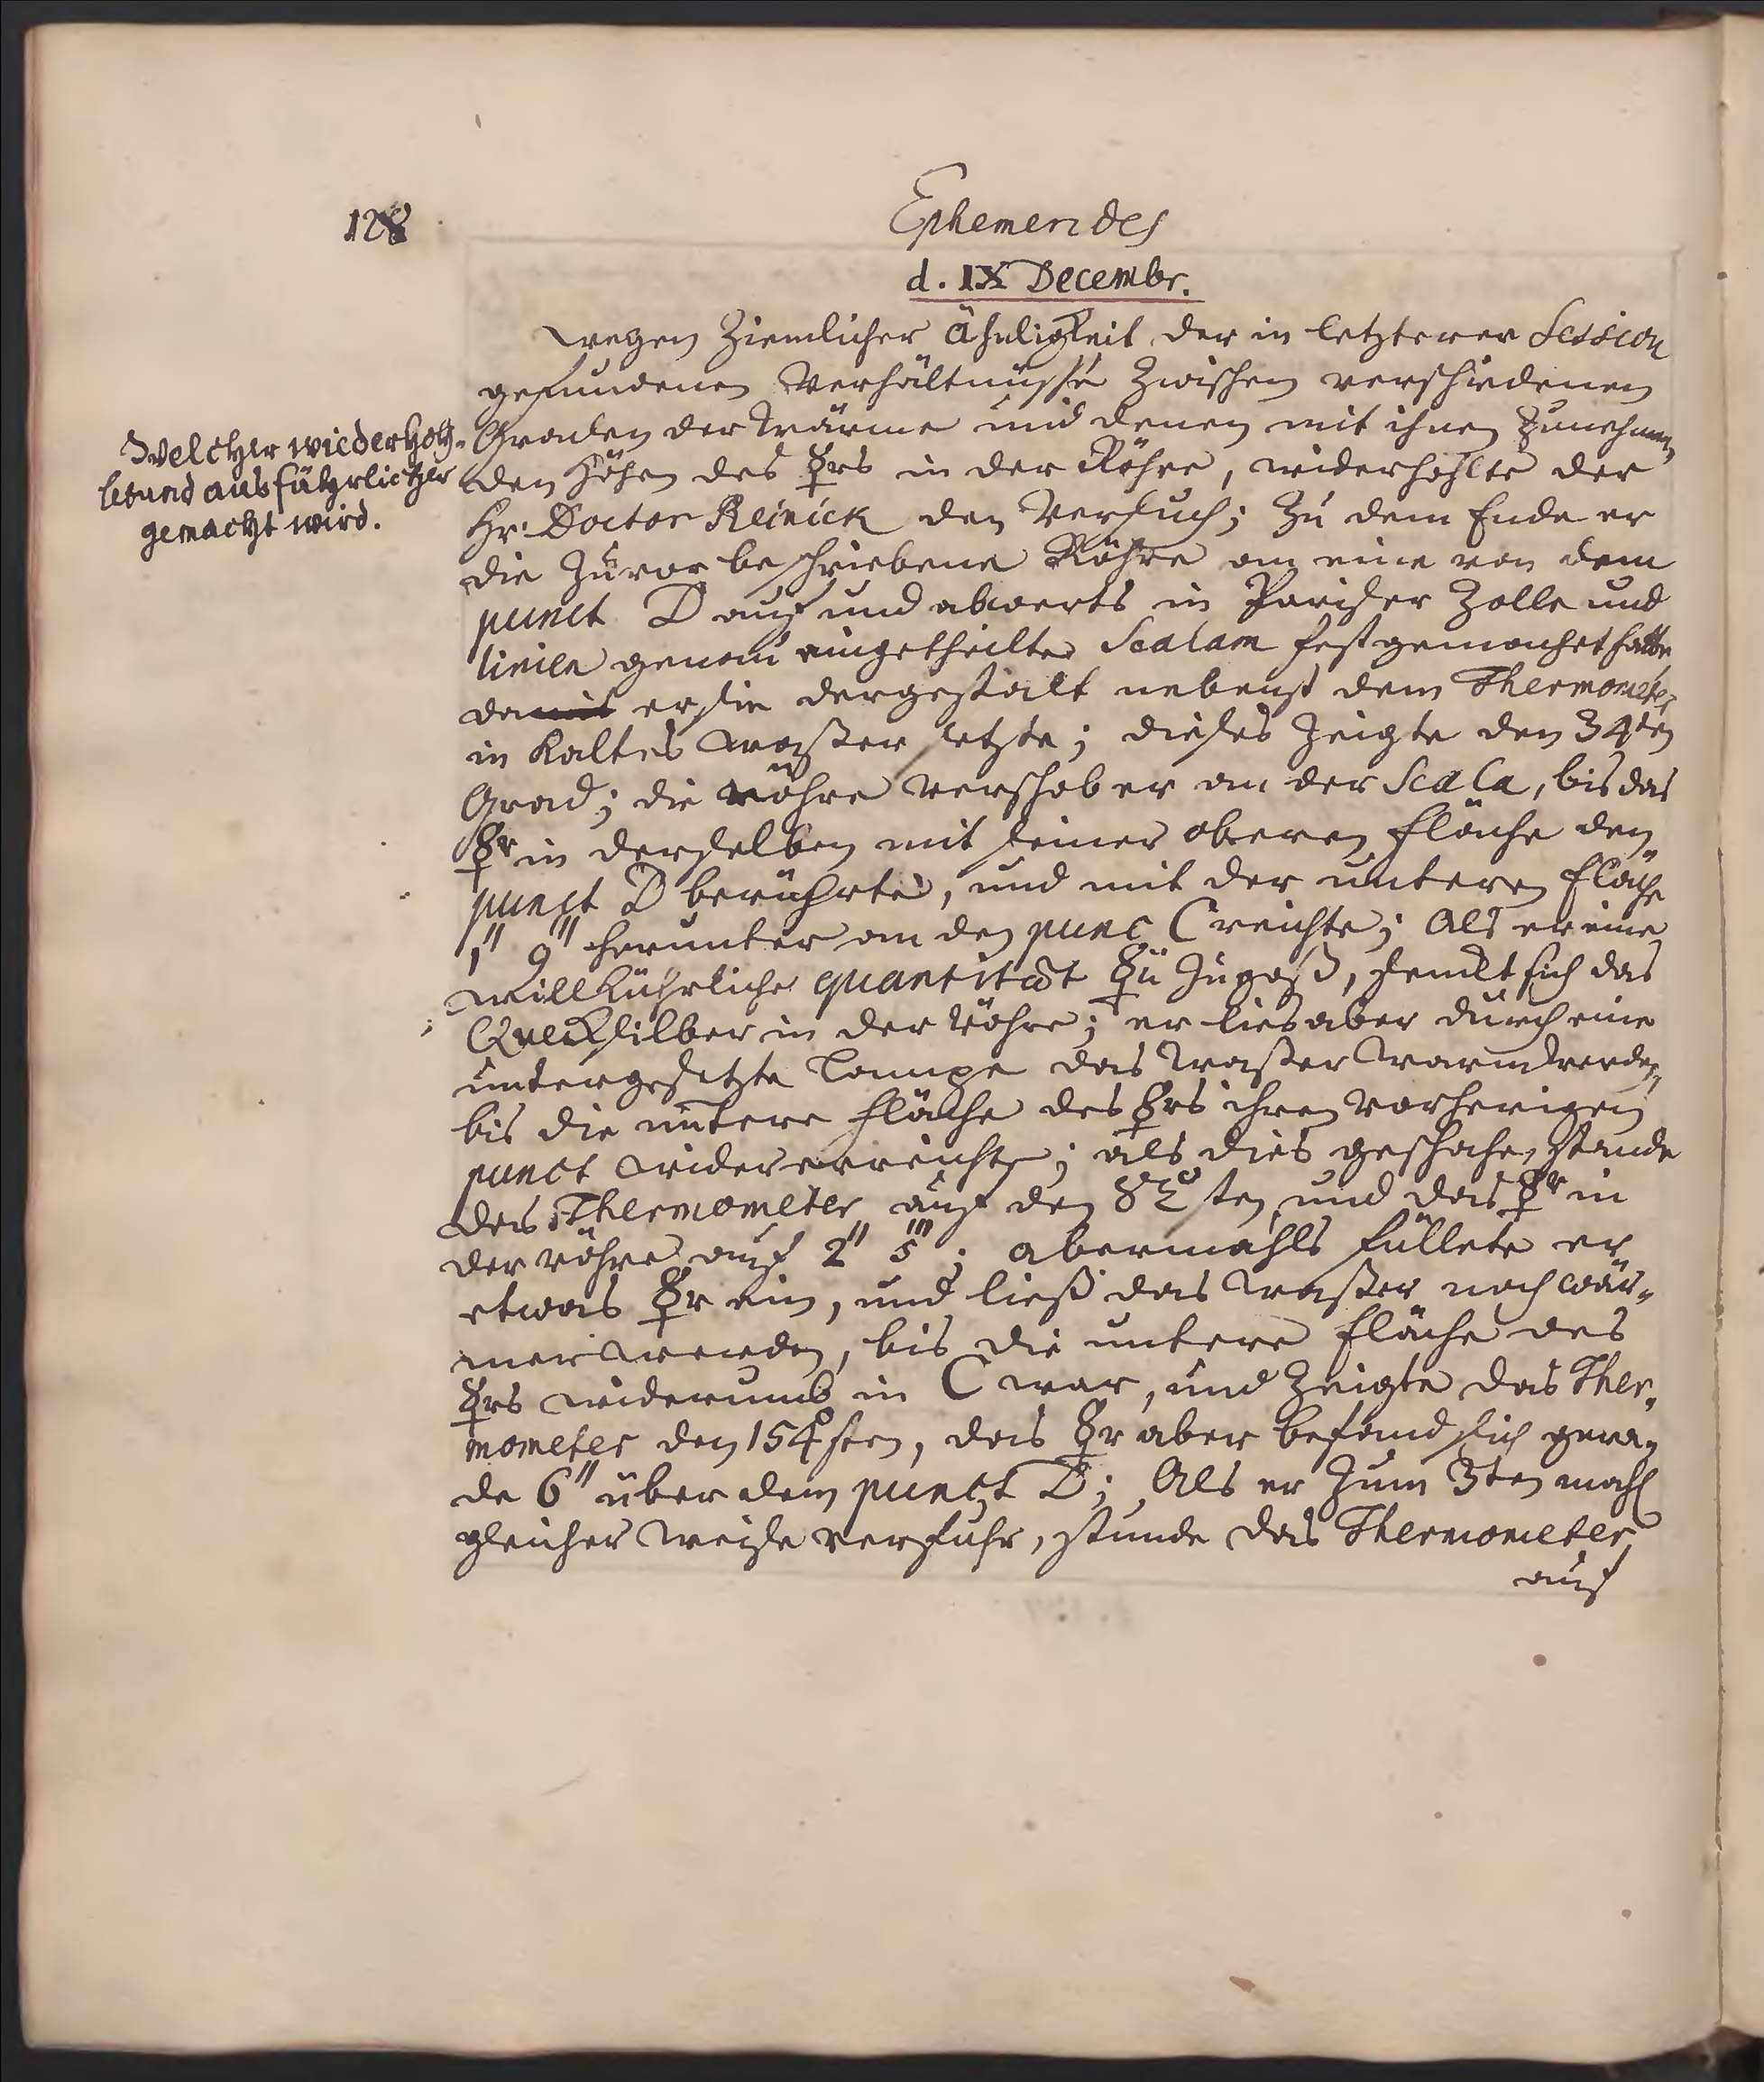 128
Ephemerides
d. IX Decembr.
wegen Ziemlicher Ähnligkeit der in letzterer Session
gefundenen Verhältnüsse Zwischen verschiedenen
Welcher wiederhoh-
let und ausführlicher
gemacht wird.
Graden der Wärme und denen mit ihnen Zunehmen„
den Höhen des ☿rs in der Röhre, widerhohlte der
Hr. Doctor Reinick den Versuch; Zu dem Ende er
die Zuvor beschriebene Röhre an eine von dem
punct D auf und abwerts in Pariser Zolle und
linien genau eingetheilte Scalam fest gemachet hatte,
er sie dergestalt nebenst dem Thermometer
in Kaltes Waßer setzte; dieses Zeigte den 34ten
Grad; die röhre verschob er an der Scala, bis das
☿r in derselben mit seiner oberen fläche den
punct D berührte, und mit der unteren fläche
1" 9''' herunter an den punc C reichte; Als er eine
willkührliche quantität ☿ii Zugoß, senckt sich das
Quecksilber in der röhre; er lies aber durch eine
untergesetzte Lampe das Waßer Warm werden„
bis die untere fläche des ☿rs ihren vorherigen
punct wider erreichte; als dies geschahe, stande
das Thermometer auf den 82sten und das ☿r in
der röhre auf 2" 5'''; abermahls füllete er
etwas ☿r ein, und ließ das Waßer noch wär„
mer werden, bis die untere fläche des
☿rs widerumb in C war, und Zeigte das Ther„
mometer den 154sten, das ☿r aber befand sich gera„
de 6" über dem punct D; Als er Zum 3ten mahl
gleicher Weise verfuhr, stunde das Thermometer
auf